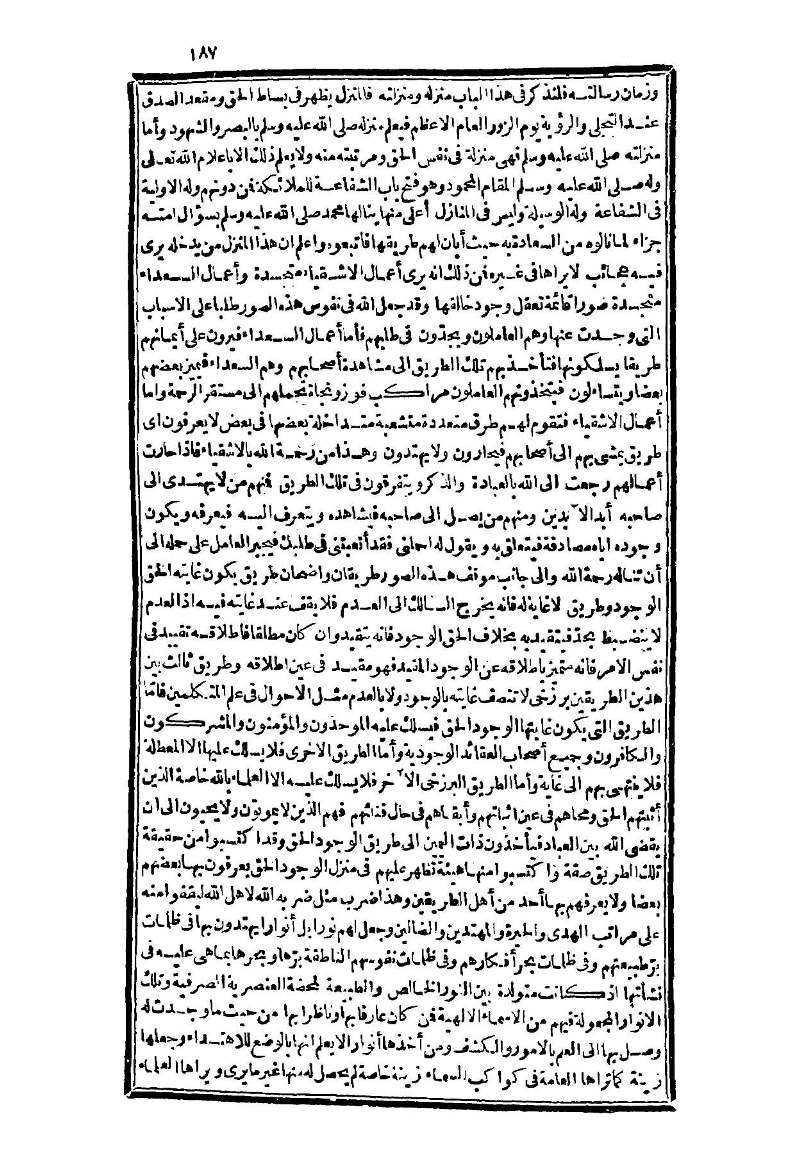 ١٨٧
وزمان رسالته فلنذكر في هذا الباب منزله ومنزلته فالمنزل يظهر في بساط الحق ومقعد الصدق
عند التجلي والرؤية يوم الزور العام الاعظم فيعلم منزله صلى الله عليه وسلم بالبصر والشهود وأما
منزلته صلى الله عليه وسلم فهي منزلة في نفس الحق ومرتبته منه ولا يعلم ذلك الا باعلام الله تعالى
وله صلى الله عليه وسلم المقام المحمود وهو فتح باب الشفاعة للملائكة فن دونهم وله الاولية
في الشفاعة وله الوسيلة وليس في المنازل أعلى منها ينالها محمد صلى الله عليه وسلم بسؤال امته
جزاء لما نالوه من السعادة به حيث أبان لهم طريقها فاتبعوه واعلم ان هذا المنزل من يدخله يرى
فيه عجائب لا يراها في غيره فن ذلك انه يرى أعمال الاشقياء متجسدة وأعمال السعداء
متجسدة صورا قائمة تعقل وجود خالقها وقد جعل الله في نفوس هذه الصور طلبا على الاسباب
التي وجدت عنها وهم العاملون ويجدون في طلبهم فأما أعمال السعداء فيرون على أيمانهم
طريقا يسلكونها فتأخذ بهم تلك الطريق الى مشاهدة أصحابهم وهم السعداء فيميز بعضهم
بعضا ويتساءلون فيتخذونهم العاملون مراكب فوز ونجاة تحملهم الى مستقر الرحمة واما
أعمال الاشقياء فتقوم لهم طرق متعددة متشعبة متداخلة بعضها في بعض لا يعرفون اى
طريق يمشى بهم الى أصحابهم فيحارون ولا يهتدون وهذا من رحمة الله بالاشقياء فاذا حارت
أعمالهم رجعت الى الله بالعبادة والذكر ويتفرقون في تلك الطريق فنهم من لا يهتدى الى
صاحبه أبد الآبدين ومنهم من يصل الى صاحبه فيشاهده ويتعرف اليه فيعرفه ويكون
وجوده اياه مصادفة فيتعلق به ويقول له احملنى فقد أتعبتنى في طلبك فيجبر العامل على حمله الى
أن تناله رحمة الله والى جانب موقف هذه الصور طريقان واضحان طريق يكون غايته الحق
الوجود وطريق لا غاية له فانه يخرج السالك الى العدم فلا يقف عند غايته فيه اذ العدم
لا ينضبط بحد فيتقيد به بخلاف الحق الوجود فانه يتقيد وان كان مطلقا فاطلاقه تقييد في
نفس الامر فانه متميز باطلاقه عن الوجود المقيد فهو مقيد في عين اطلاقه وطريق ثالث بين
هذين الطريقين برزخى لا تتصف غايته بالوجود ولا بالعدم مثل الاحوال في علم المتكلمين فاما
الطريق التى يكون غايتها الوجود الحق فيسلك عليه الموحدون والمؤمنون والمشركون
والكافرون وجميع أصحاب العقائد الوجودية وأما الطريق الاخرى فلا يسلك عليها الا المعطلة
فلا ينتهى بهم الى غاية وأما الطريق البرزخى الآخر فلا يسلك عليه الا العلماء بالله خاصة الذين
أثبتهم الحق ومحاهم في عين اثباتهم وأبقاهم في حال فنائهم فهم الذين لا يموتون ولا يحيون الى ان
يقضى الله بين العباد فيأخذون ذات اليمين الى طريق الوجود الحق وقد اكتسبوا من حقيقة
تلك الطريق صفة واكتسبوا منها هيئة تظهر عليهم في منزل الوجود الحق يعرفون بها بعضهم
بعضا ولا يعرفهم بها أحد من أهل الطريقين وهذا ضرب مثل ضربه الله لاهل الله ليقفوا منه
على مراتب الهدى والحيرة والمهتدين والضالين وجعل لهم نورا بل أنوارا يهتدون بها في ظلمات
بر طبيعتهم وفى ظلمات بحر أفكارهم وفى ظلمات نفوسهم الناطقة برها وبحرها بما هى عليه في
نشأتها اذ كانت متولدة بين النور الخالص والطبيعة المحضة العنصرية الصرفية وتلك
الانوار المجعولة فيهم من الاسماء الالهية فن كان عارفا بها وناظرا بها من حيث ما وجدت له
وصل بها الى العلم بالامور والكشف ومن أخذها أنوارا لا يعلم انها بالوضع للاهتداء وجعلها
زينة كما تراها العامة في كواكب السماء زينة خاصة لم يحصل له منها غير ما يرى ويراها العلماء